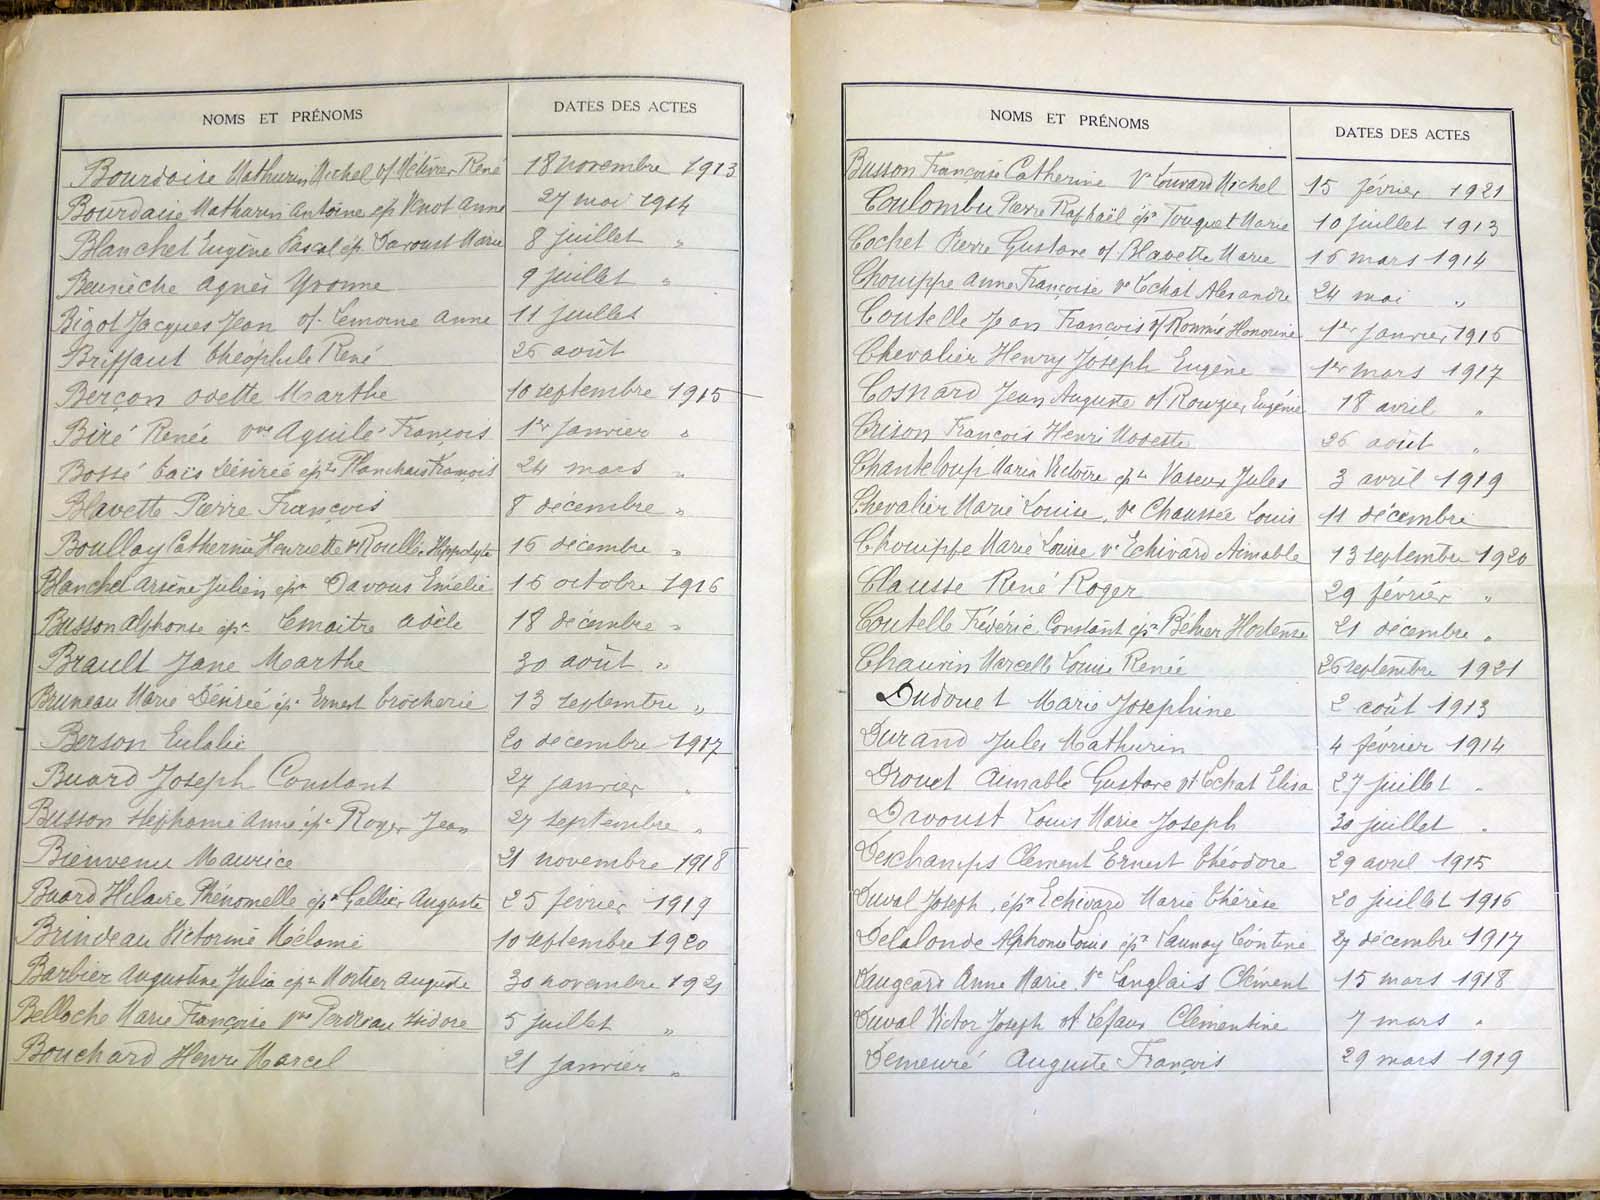 NOMS ET PRÉNOMS DATES DES ACTES
Bourdaise Mathurin Michel vf Métivier René 18 novembre 1913
Bourdaise Mathurin Antoine ép 27 mai 1914
Blanchet Eugène Pascal ép Davoust Marie 8 juillet "
Beunèche Agnès Yvonne 9 juillet "
Bigot Jacques Jean vf Lemoine Anne 11 juillet
Briffaut Théophile René 26 août
Berçon Odette Marthe 10 septembre 1915
Biré Renée vve Aguilé François 1er janvier "
Bossé Désirée épse Planchais François 24 mars "
Blavette Pierre François 8 décembre "
Boullay Catherine Henriette Ve Roullier Hippolyte 16 décembre "
Blanchet Arsène Julien épx Davous Emélie 16 octobre 1916
Busson Alphonse épx Lemaitre Adèle 18 décembre "
Brault Jane Marthe 30 août "
Bruneau Marie Désirée épse Ernest Crocherie 13 septembre "
Berson Eulalie 20 décembre 1917
Buard Joseph Constant 27 janvier "
Busson Stéphanie Anne épse Roger Jean 27 septembre "
Bienvenu Maurice 21 novembre 1918
Buard Hilaire Phénomelle épse Gallier Auguste 25 février 1919
Brindeau Victorine Mélanie 10 septembre 1920
Barbier Augustine Julia épse Mortier Auguste 30 novembre 1921
Belloche Marie Françoise vve Perdreau Isidore 5 juillet "
Bouchard Henri Marcel 21 janvier "
NOMS ET PRÉNOMS DATES DES ACTES
Busson Françoise Catherine Ve Louvard Michel 15 février 1921
Coulombu Pierre Raphaël épx Touquet Marie 10 juillet 1913
Cochet Pierre Gustave vf Blavette Marie 16 mars 1914
Chouippe Anne Françoise ve Echat Alexandre 24 mai "
Coutelle Jean François vf Rommé Honorine 1er janvier 1916
Chevalier Henry Joseph Eugène 1er mars 1917
Cosnard Jean Auguste vf Rouzier Eugénie 18 avril "
Crison François Henri Modeste 26 août "
Chanteloup Maria Victoire épse Vaseux Jules 3 avril 1919
Chevalier Marie Louise, ve Chaussée Louis 11 décembre
Chouippe Marie Louise ve Echivard Aimable 13 septembre 1920
Clausse René Roger 29 février "
Coutelle Frédéric Constant épx Hortense 21 décembre "
Chauvin Marcelle Louise Renée 26 septembre 1921
Dudouet Marie Josephine 2 août 1913
Durand Jules Mathurin 4 février 1914
Drouet Aimable Gustave vf Echat Elisa 27 juillet "
Davoust Louis Marie Joseph 30 juillet "
Deschamps Clément Ernest Théodore 29 avril 1915
Duval Joseph, épx Echivard Marie Thérèse 20 juillet 1916
Delalonde Alphonse Louis épx Launay Léontine 27 décembre 1917
Daugeard Anne Marie Ve Langlais Clément 15 mars 1918
Duval Victor Joseph vf Lefaux Clémentine 7 mars "
Demeuré Auguste François 29 mars 1919